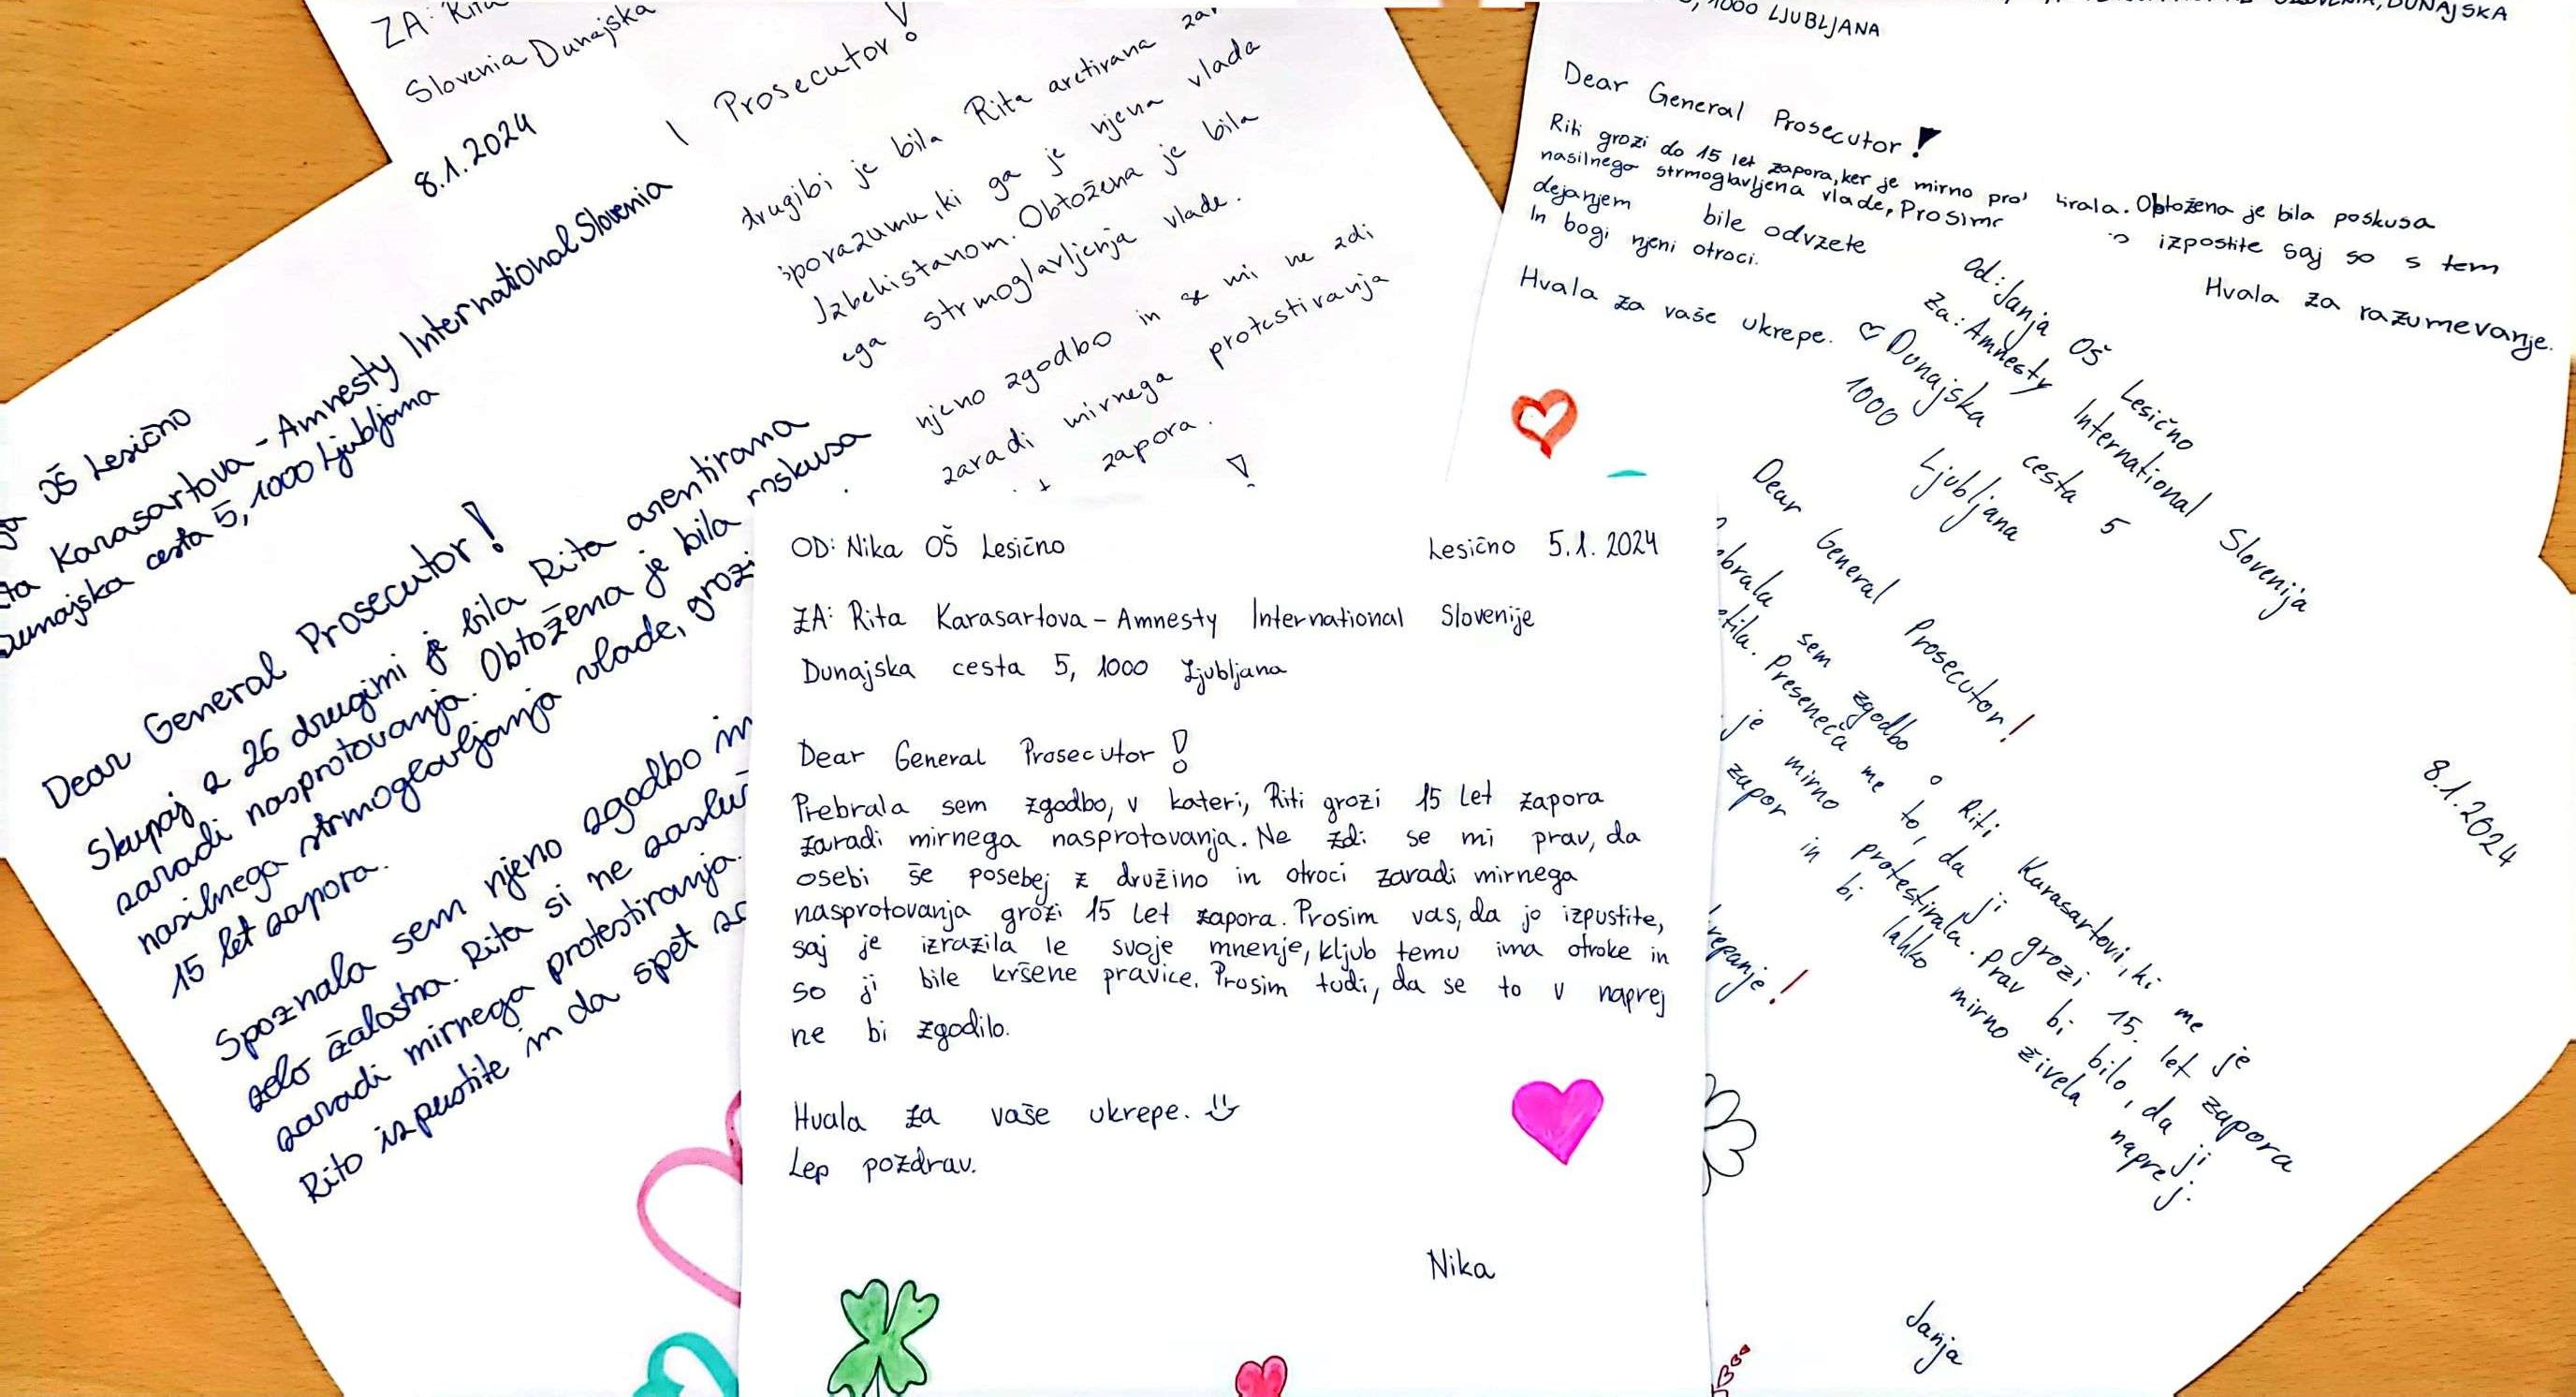 ZA: Rita
Slovenia Dunajska
Prosecutor!
drugibi je bila Rita aretirana
sporazumu, ki ga je njena vlada
Izbekistanom. Obtožena je bila
ega strmoglavljenja vlade.
njeno zgodbo in se mi ne zdi
zaradi mirnega protestiranja
zapora.
!
8.1.2024
OŠ Lesično
Karasartova - Amnesty International Slovenia
Dunajska cesta 5, 1000 Ljubljana
Dear General Prosecutor!
Skupaj z 26 drugimi je bila Rita arentirana
zaradi nasprotovanja. Obtožena je bila poskusa
nasilnega strmoglavljanja vlade, grozi
15 let zapora.
Spoznala sem njeno zgodbo in
zelo žalostna. Rita si ne zasluž
zaradi mirnega protestiranja.
Rito izpustite in da spet
OD: Nika OŠ Lesično
Lesično 5.1.2024
ZA: Rita Karasartova - Amnesty International Slovenije
Dunajska cesta 5, 1000 Ljubljana
Dear General Prosecutor!
Prebrala sem zgodbo, v kateri, Riti grozi 15 let zapora
zaradi mirnega nasprotovanja. Ne zdi se mi prav, da
osebi še posebej z družino in otroci zaradi mirnega
nasprotovanja grozi 15 let zapora. Prosim vas, da jo izpustite,
saj je izrazila le svoje mnenje, kljub temu ima otroke in
so ji bile kršene pravice. Prosim tudi, da se to v naprej
ne bi zgodilo.
Hvala za vaše ukrepe.
Lep pozdrav.
Nika
1000 LJUBLJANA
DUNAJSKA
Dear General Prosecutor!
Riti grozi do 15 let zapora, ker je mirno pro tirala. Obtožena je bila poskusa
nasilnega strmoglavljena vlade, Prosimo izpostite saj so s tem
dejanjem bile odvzete
In bogi njeni otroci.
Hvala za razumevanje.
Hvala za vaše ukrepe.
Od: Janja OŠ Lesično
Za: Amnesty International Slovenija
Dunajska cesta 5
1000 Ljubljana
8.1.2024
Dear General Prosecutor!
ebrala sem zgodbo o Riti Karasartovi, ki me je
etila. Preseneča me to, da ji grozi 15. let zapora
je mirno protestirala. Prav bi bilo, da ji
zapor in bi lahko mirno živela naprej.
repanje!
Janja